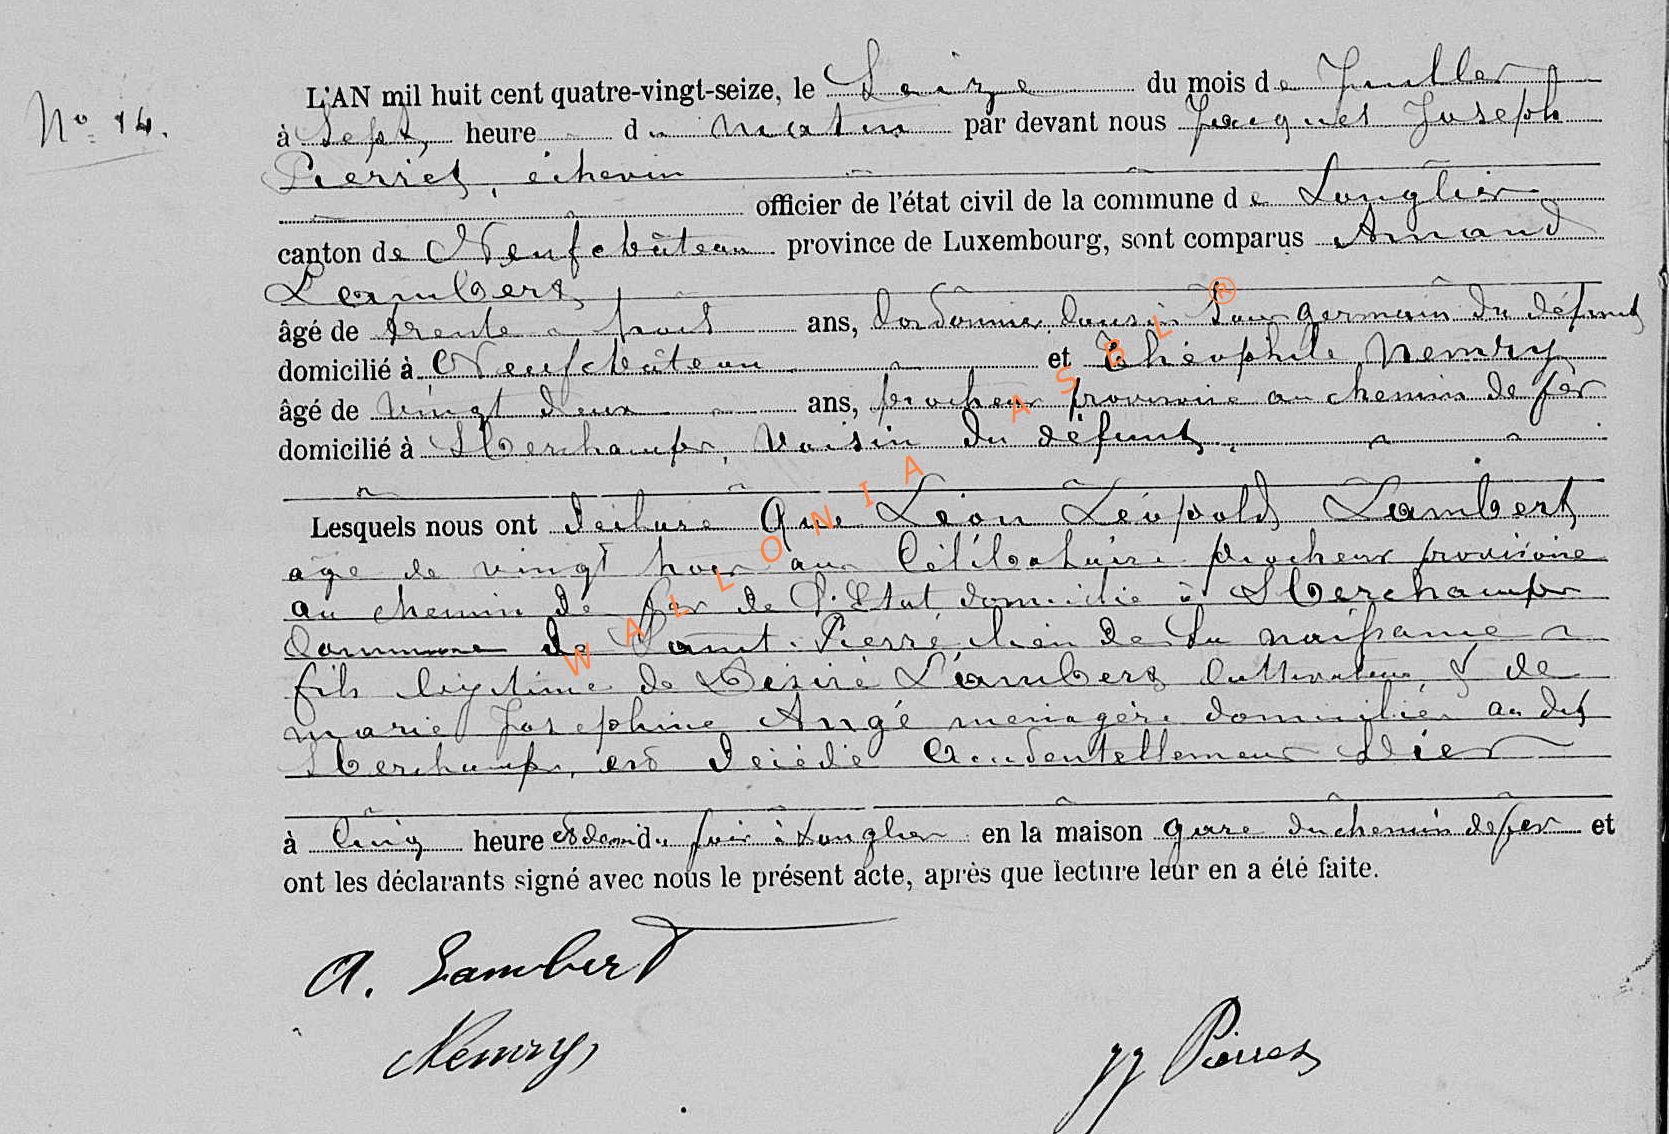 Nº 14.
L'AN mil huit cent quatre-vingt-seize, le Seize du mois de Juillet
à Sept heure du matin par devant nous Jacques Joseph
Pierret, échevin
officier de l'état civil de la commune de Longlier
canton de Neufchâteau province de Luxembourg, sont comparus Amand
Lambert
âgé de trente trois ans, Cordonnier, Cousin germain du défunt
domicilié à Neufchâteau et Théophile Nemry
âgé de vingt deux ans, piocheur provisoire au chemin de fer
domicilié à Hberchamps, Voisin du défunt,
Lesquels nous ont déclaré Que Léon Léopold Lambert
agé de vingt ans Célibataire piocheur provisoire
au chemin de fer de l'Etat domicilié à Sberchamps
Commune de Saint-Pierre, lieu de Sa naissance
fils légitime de Désiré Lambert Cultivateur & de
marie Josephine Angé menagère domiciliés au dit
Sberchamps, est décédé Accidentellement hier
à Cinq heure et demi du soir à Longlier en la maison gare du chemin de fer et
ont les déclarants signé avec nous le présent acte, après que lecture leur en a été faite.
A. Lambert
Nemry
JJ Pierret
WALLONIA ASBL ®